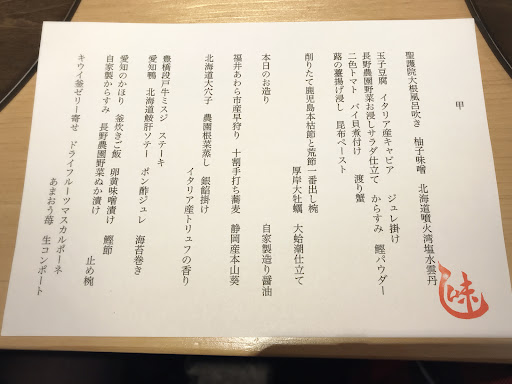 甲
聖護院大根風呂吹き 柚子味噌 北海道噴火湾塩水雲丹
玉子豆腐 イタリア産キャビア ジュレ掛け
長野農園野菜お浸しサラダ仕立て からすみ 鰹パウダー
二色トマト バイ貝煮付け 渡り蟹
蕗の薹揚げ浸し 昆布ペースト
削りたて鹿児島本枯節と荒節一番出し椀
厚岸大牡蠣 大蛤潮仕立て
本日のお造り 自家製造り醤油
福井あわら市産早狩り 十割手打ち蕎麦 静岡産本山葵
北海道大穴子 農園根菜蒸し 銀餡掛け
イタリア産トリュフの香り
豊橋段戸牛ミスジ ステーキ
愛知鴨 北海道鮟肝ソテー ポン酢ジュレ 海苔巻き
愛知のかほり 釜炊きご飯 卵黄味噌漬け 鰹節
自家製からすみ 長野農園野菜ぬか漬け 止め椀
キウイ釜ゼリー寄せ ドライフルーツマスカルポーネ
あまおう苺 生コンポート
味